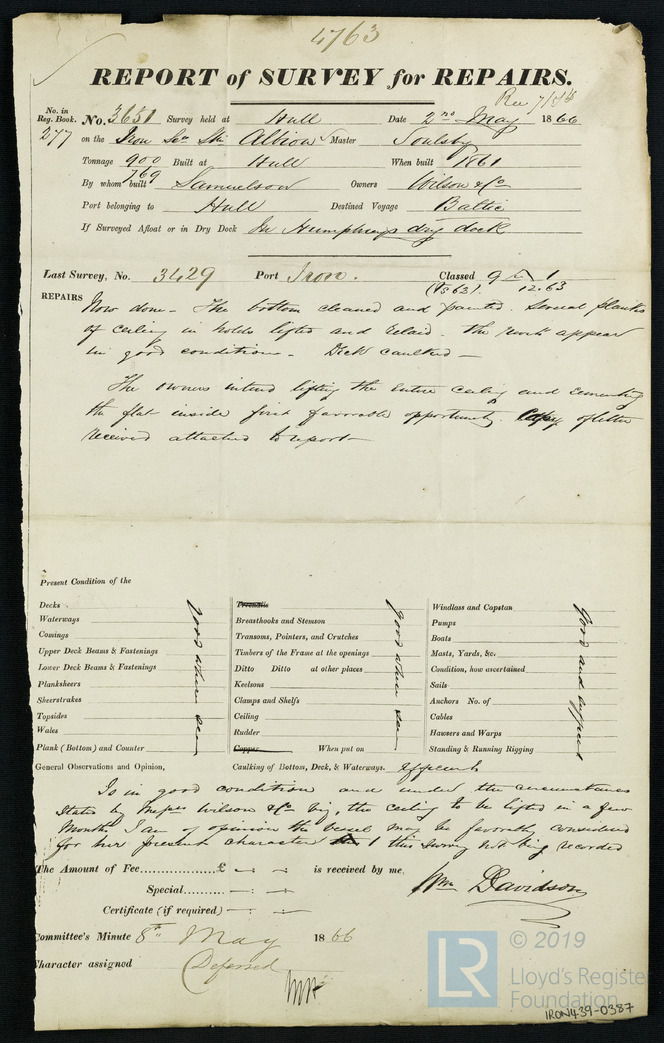 4763
REPORT of SURVEY for REPAIRS.
Rec 7/5/66
No. in Reg. Book. No. 3651 Survey held at Hull Date 2nd May 1866
277 on the Iron Scr Str Albion Master Soulsby
Tonnage 900 Built at Hull When built 1861
769
By whom built Samuelson Owners Wilson & Co
Port belonging to Hull Destined Voyage Baltic
If Surveyed Afloat or in Dry Dock In Humphreys dry dock
Last Survey, No. 3429 Port Iron. Classed 9 A 1
12.63
REPAIRS Now done - The bottom cleaned and painted. Several planks
of ceiling in holds lifted and relaid. the work appear
in good condition - Deck caulked -
The owners intend lifting the entire ceiling and cementing
the flat inside first favorable opportunity. Copy of letter
received attached to report -
Present Condition of the
Decks
Waterways
Comings
Upper Deck Beams & Fastenings
Lower Deck Beams & Fastenings
Planksheers
Sheerstrakes
Topsides
Wales
Plank (Bottom) and Counter
good where seen
Treenails
Breasthooks and Stemson
Transoms, Pointers, and Crutches
Timbers of the Frame at the openings
Ditto Ditto at other places
Keelsons
Clamps and Shelfs
Ceiling
Rudder
Copper When put on
good where seen
Windlass and Capstan
Pumps
Boats
Masts, Yards, &c.
Condition, how ascertained
Sails
Anchors No. of
Cables
Hawsers and Warps
Standing & Running Rigging
good and efficient
General Observations and Opinion, Caulking of Bottom, Deck, & Waterways. Efficient
Is in good condition and under the circumstances
stated by Messrs Wilson & Co viz, the ceiling to be lifted in a few
Months I am of opinion this vessel may be favorably considered
for her present character 1 this survey not being recorded
The Amount of Fee................£ - : - is received by me,
Wm Davidson
Special........... - : -
Certificate (if required) - : -
Committee's Minute 8th May 1866
Character assigned Deferred
LR © 2019
Lloyd's Register
Foundation
IRON439-0387